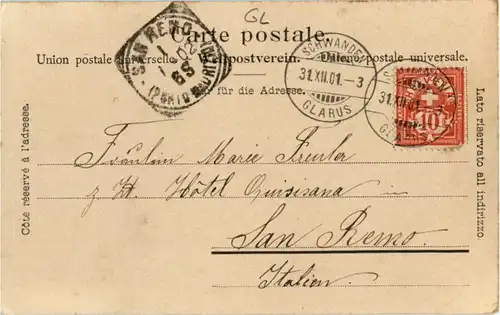 GL
Carte postale.
Union postale universelle. Weltpostverein. Unione postale universale.
Nur für die Adresse.
SAN REMO
(PORTO MAURIZIO)
1 1 02
6S
SCHWANDEN
31.XII.01.-3
GLARUS
SCHWANDEN
31.XII.01
GLARUS
10
Côté réservé à l'adresse.
Fräulein Marie Freuler
z. Z. Hôtel Quisisana
San Remo.
Italien.
Lato riservato all indirizzo.